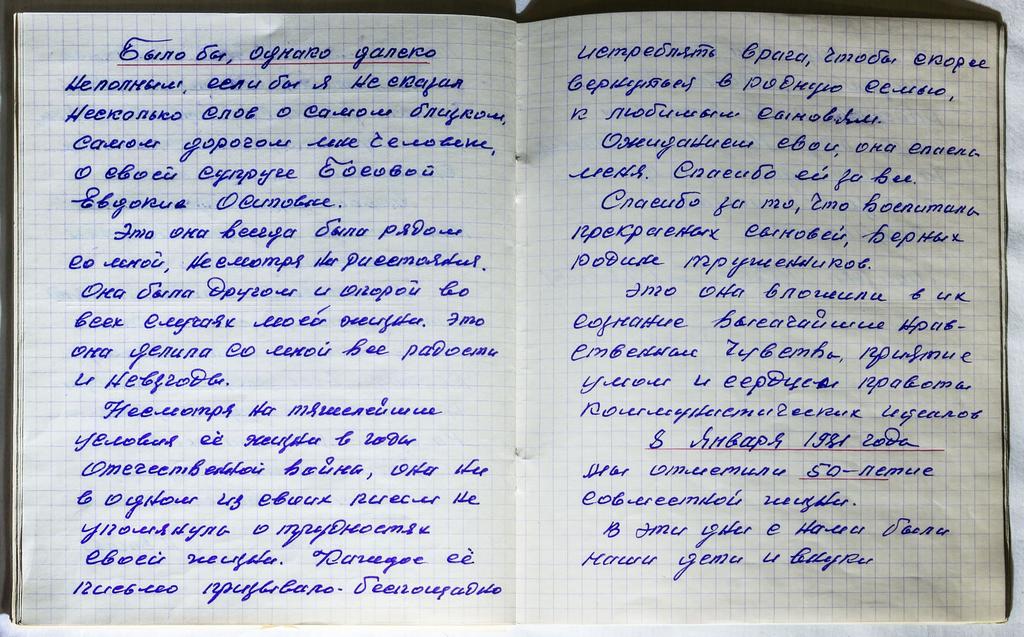 Было бы, однако далеко
неполным, если бы я не сказал
несколько слов о самом близком,
самом дорогом мне человеке,
о своей супруге Босовой
Евдокие Осиповне.
Это она всегда была рядом
со мной, несмотря на расстояния.
Она была другом и опорой во
всех случаях моей жизни. Это
она делила со мной все радости
и невзгоды.
Несмотря на тяжелейшие
условия её жизни в годы
отечественной войны, она ни
в одном из своих писем не
упомянула о трудностях
своей жизни. Каждое её
письмо призывало - беспощадно
истреблять врага, чтобы скорее
вернуться в родную семью,
к любимым сыновьям.
Ожиданием свои, она спасла
меня. Спасибо ей за все.
Спасибо за то, что воспитала
прекрасных сыновей, верных
родине тружеников.
Это она вложила в их
сознание высочайшие нрав-
ственные чувства, принятие
умом и сердцем правоты
коммунистических идеалов
8 Января 1981 года
мы отметили 50-летие
совместной жизни.
В эти дни с нами были
наши дети и внуки